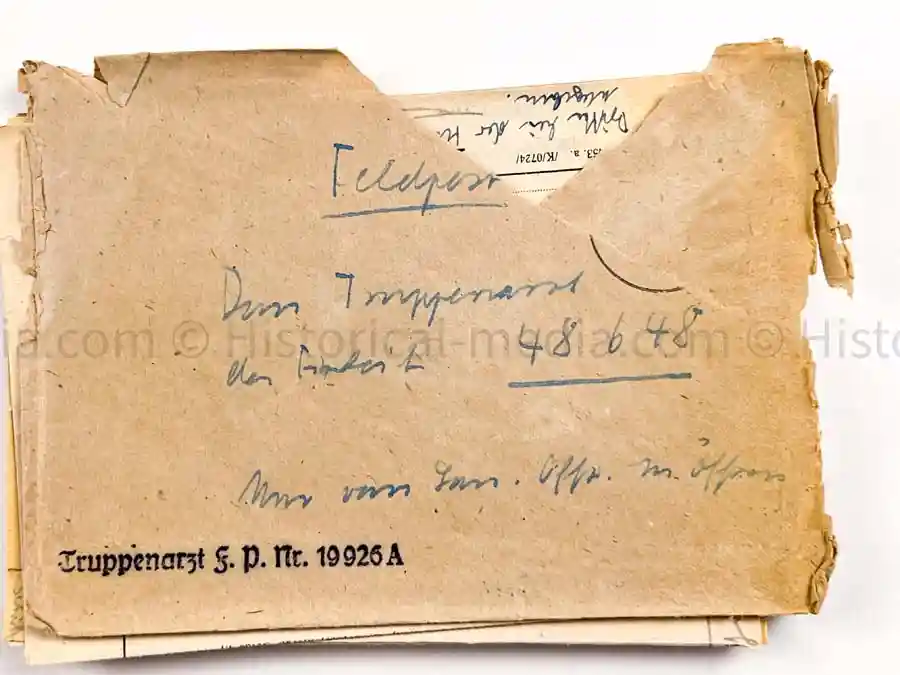 Feldpost
Dem Truppenarzt
der Einheit 48 648
Nur vom San. Offz. zu öffnen
Truppenarzt F. P. Nr. 19926 A
/K/0724/
© Historical-media.com